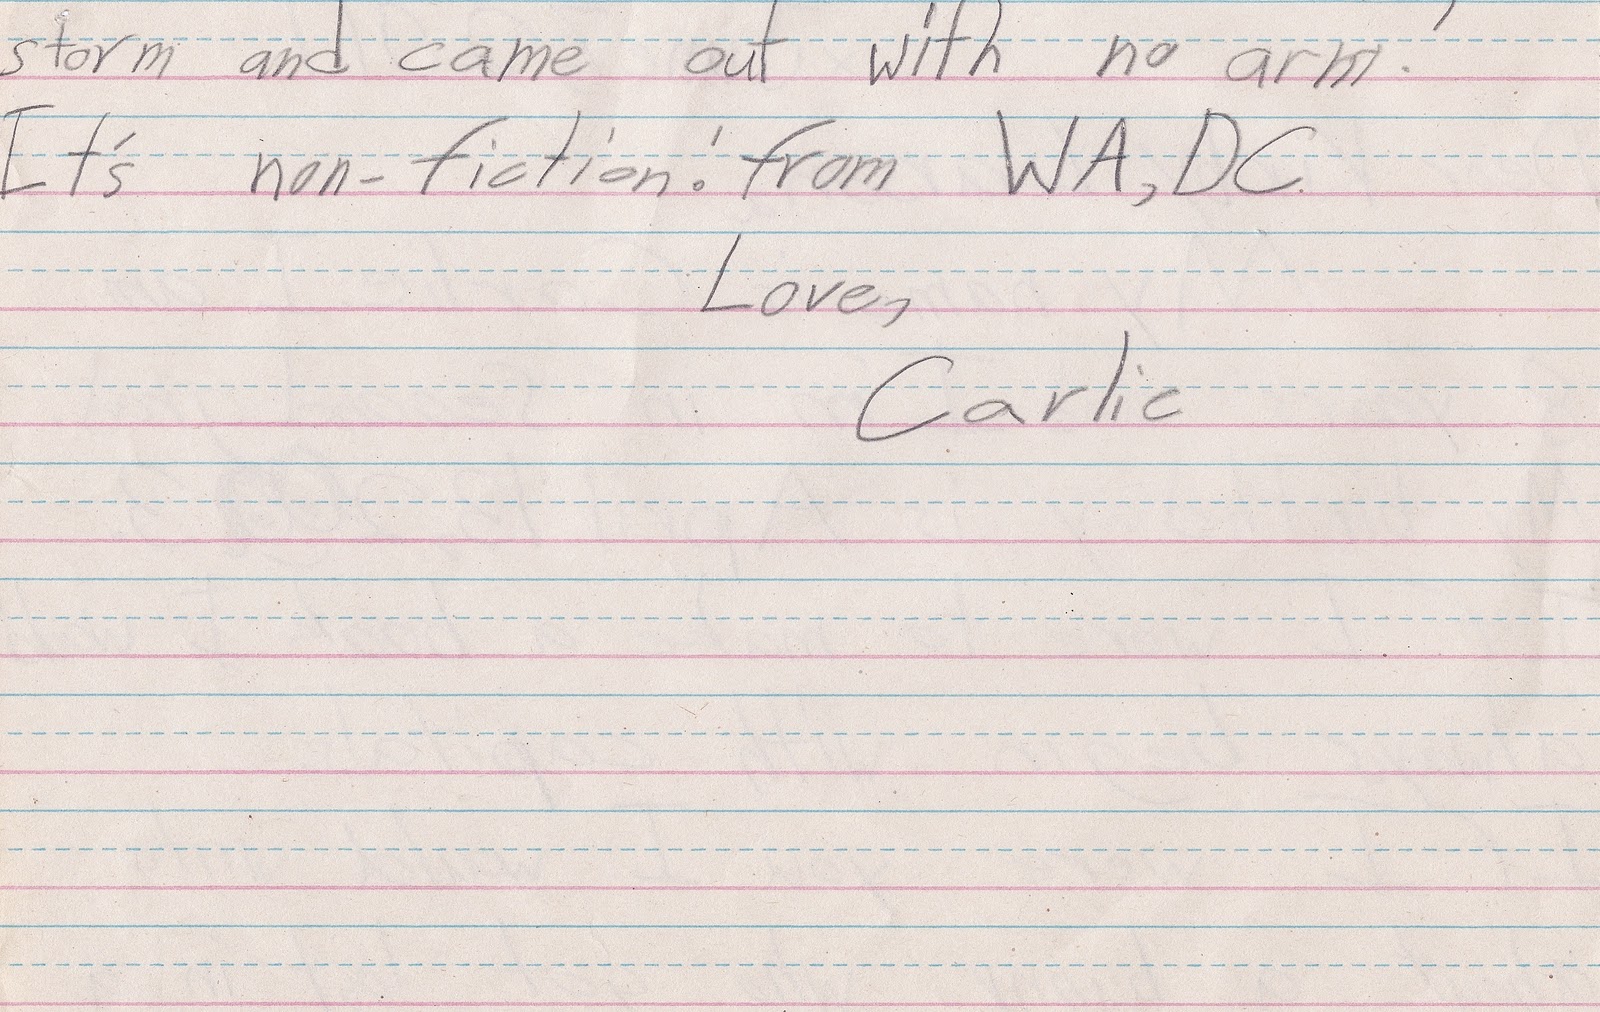 storm and came out with no arm!
It's non-fiction! from WA, DC.
Love,
Carlie